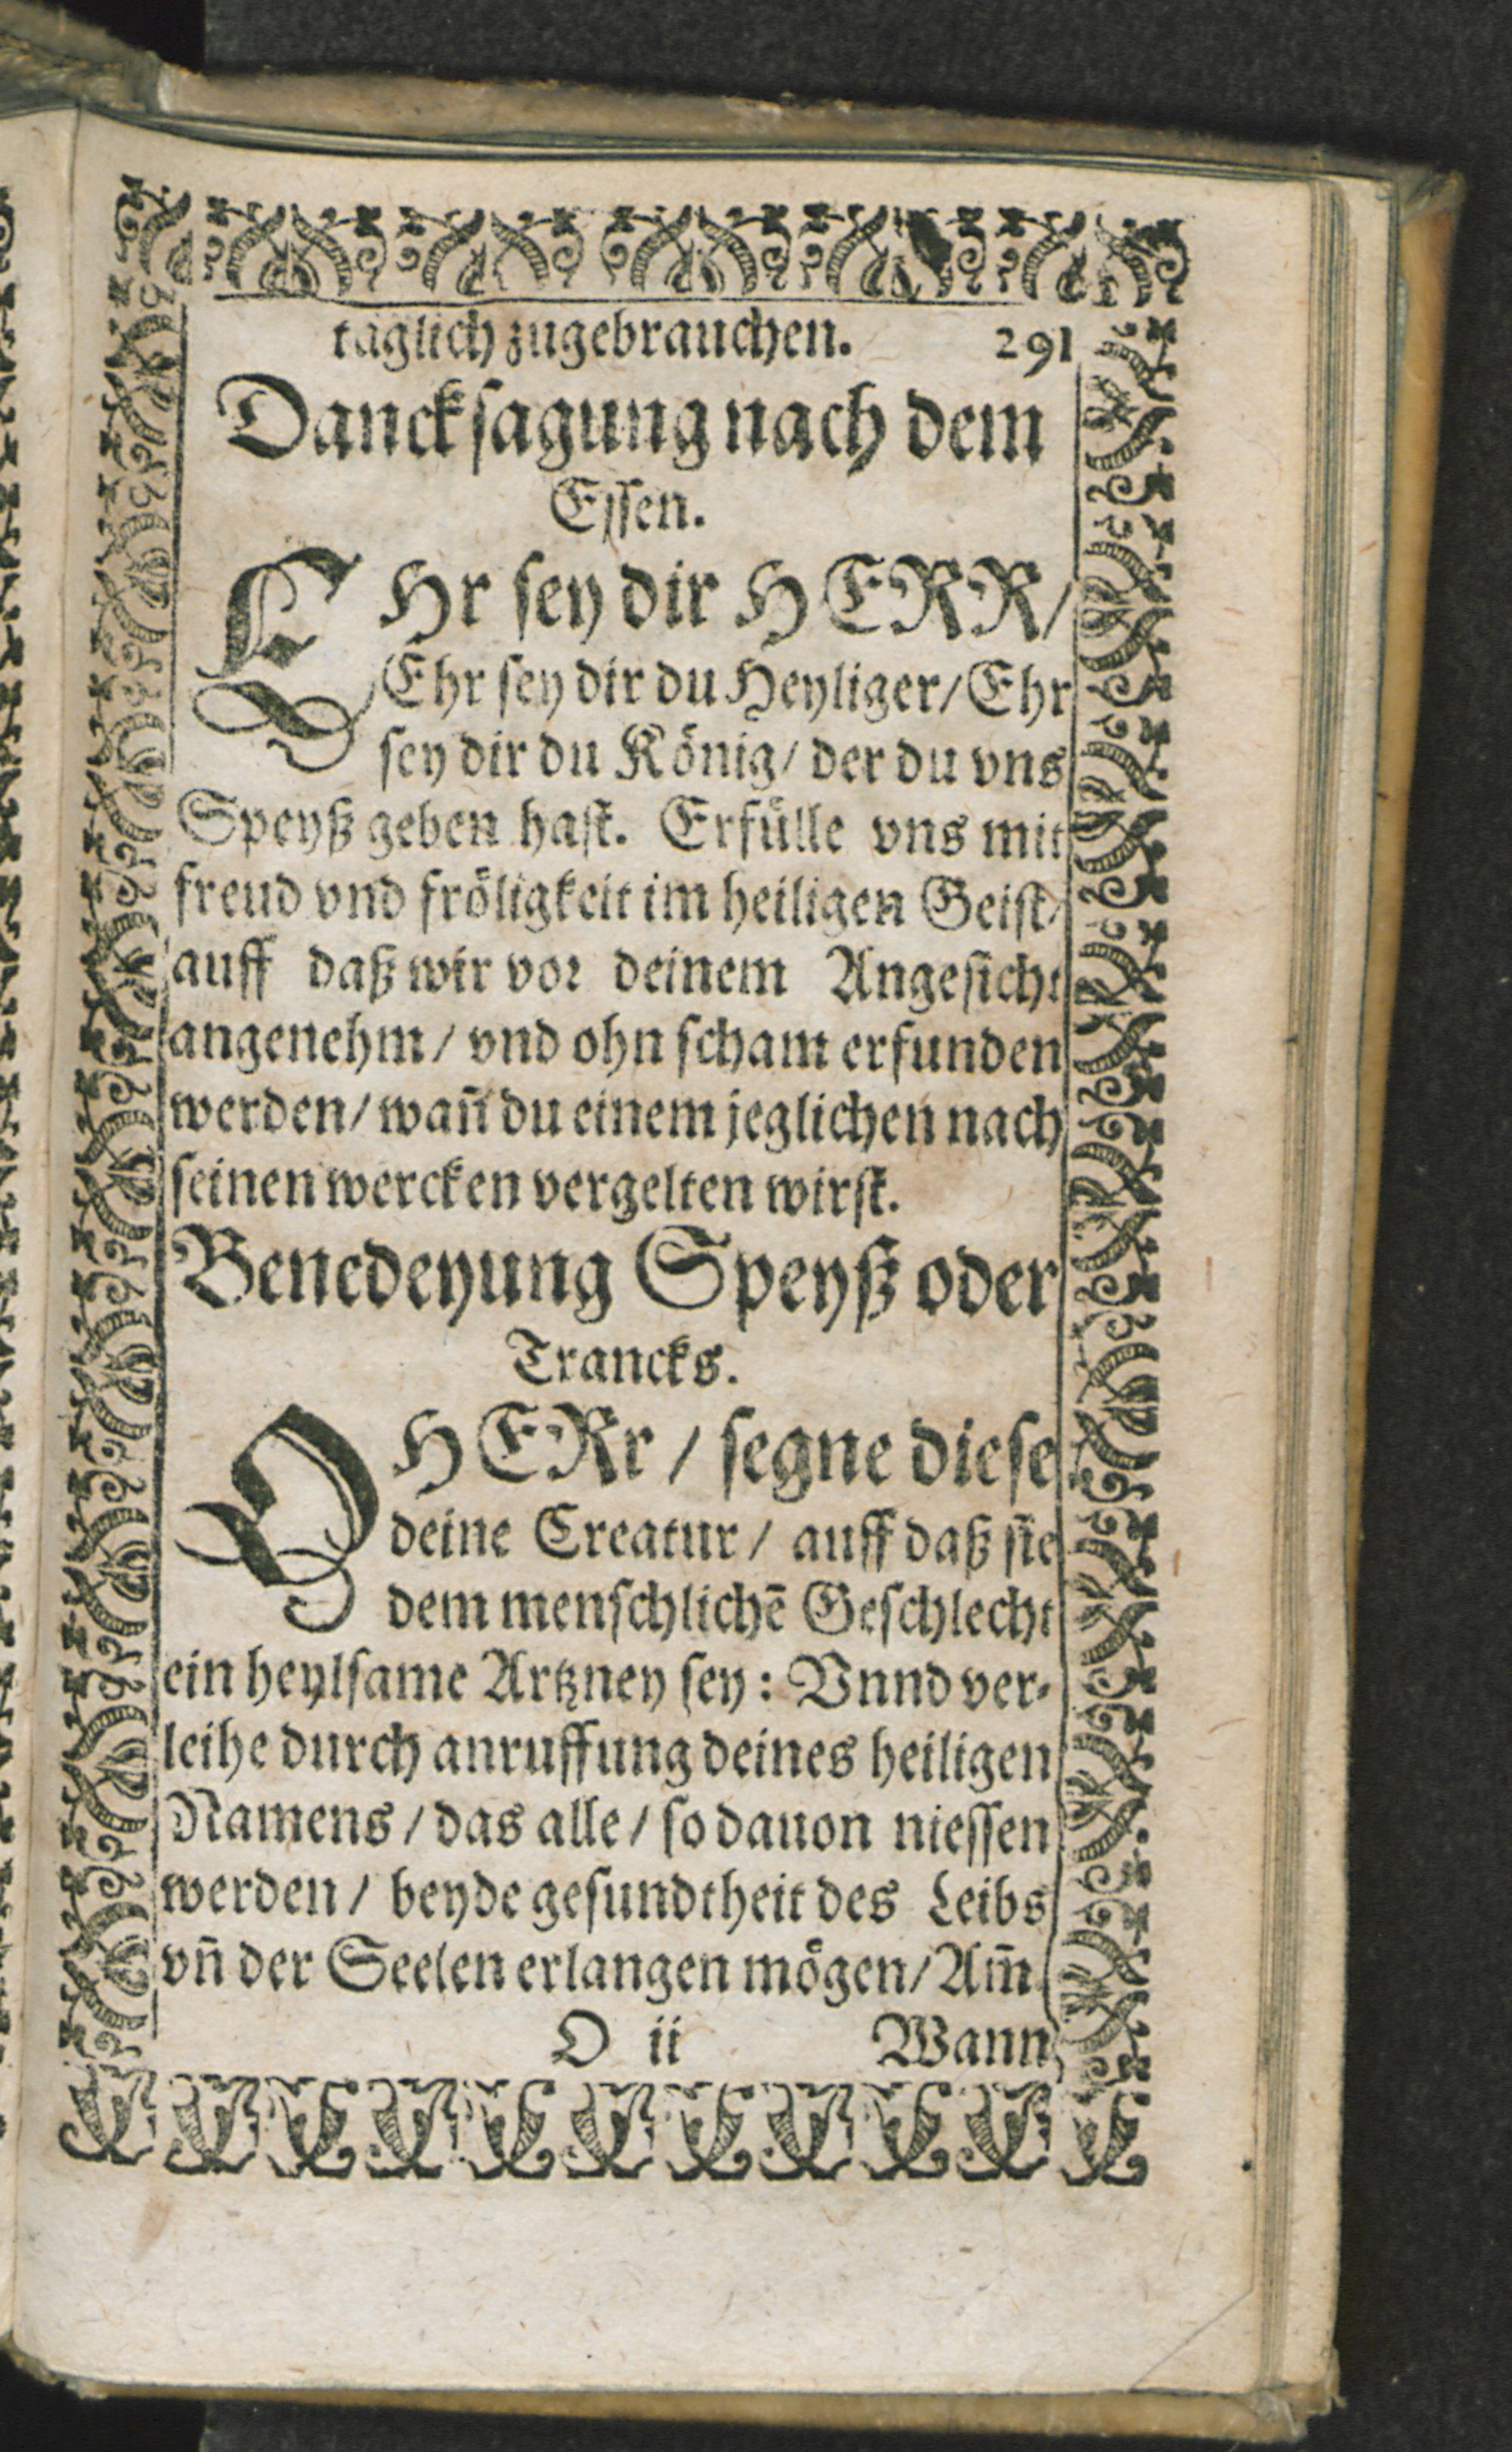 täglich zugebrauchen. 291
Dancksagung nach dem
Essen.
EHr sey dir HERR/
Ehr sey dir du Heyliger/ Ehr
sey dir du König/ der du vns
Speyß geben hast. Erfülle vns mit
freud vnd fröligkeit im heiligen Geist/
auff daß wir vor deinem Angesicht
angenehm/ vnd ohn scham erfunden
werden/ wañ du einem jeglichen nach
seinen wercken vergelten wirst.
Benedeyung Speyß oder
Trancks.
O HERr/ segne diese
deine Creatur/ auff daß sie
dem menschlichē Geschlecht
ein heylsame Artzney sey: Vnnd ver-
leihe durch anruffung deines heiligen
Namens/ das alle/ so dauon niessen
werden/ beyde gesundtheit des Leibs
vñ der Seelen erlangen mögen/ Am̃.
O ii Wann